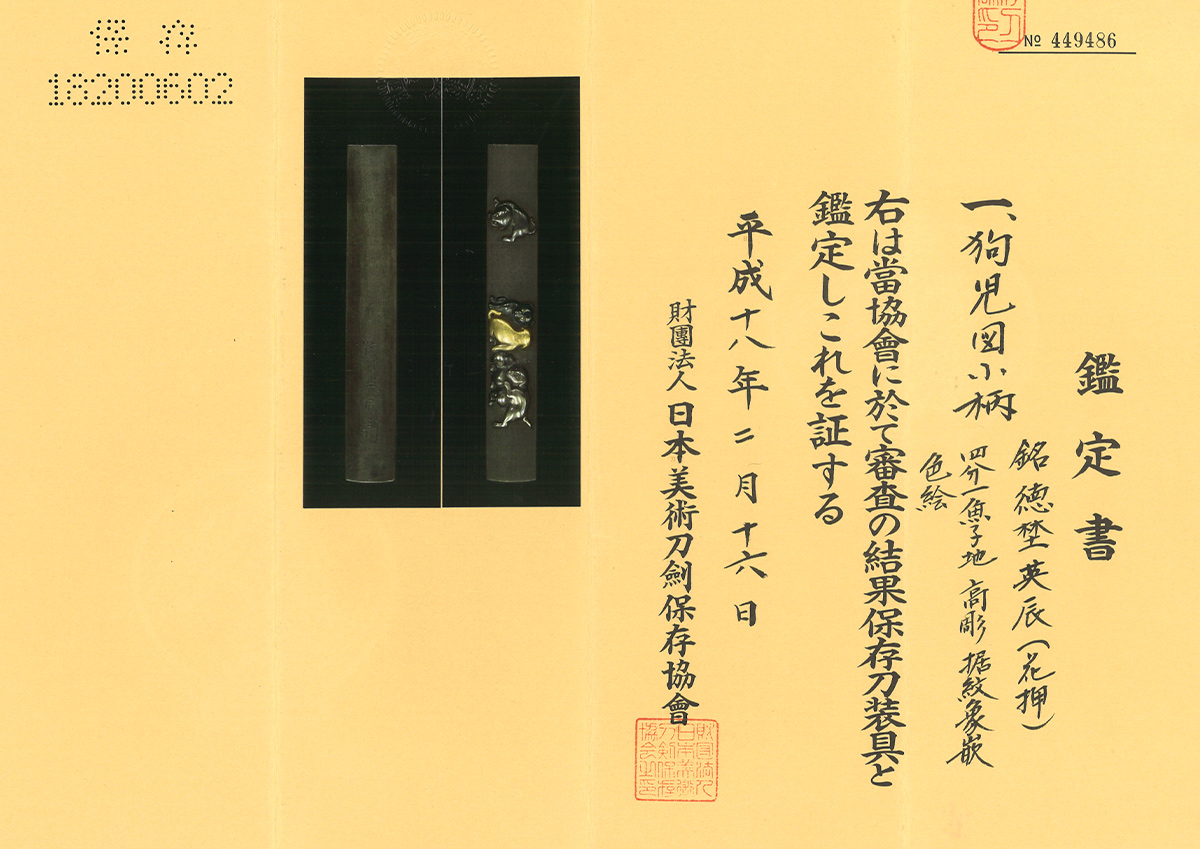 保存
18200602
№ 449486
鑑定書
一、狗児図小柄
銘 徳埜英辰(花押)
四分一魚子地 高彫 据紋象嵌
色絵
右は當協會に於て審査の結果保存刀装具と
鑑定しこれを証する
平成十八年二月十六日
財團法人 日本美術刀劍保存協會
財団法人
日本美術
刀剣保存
協会之印